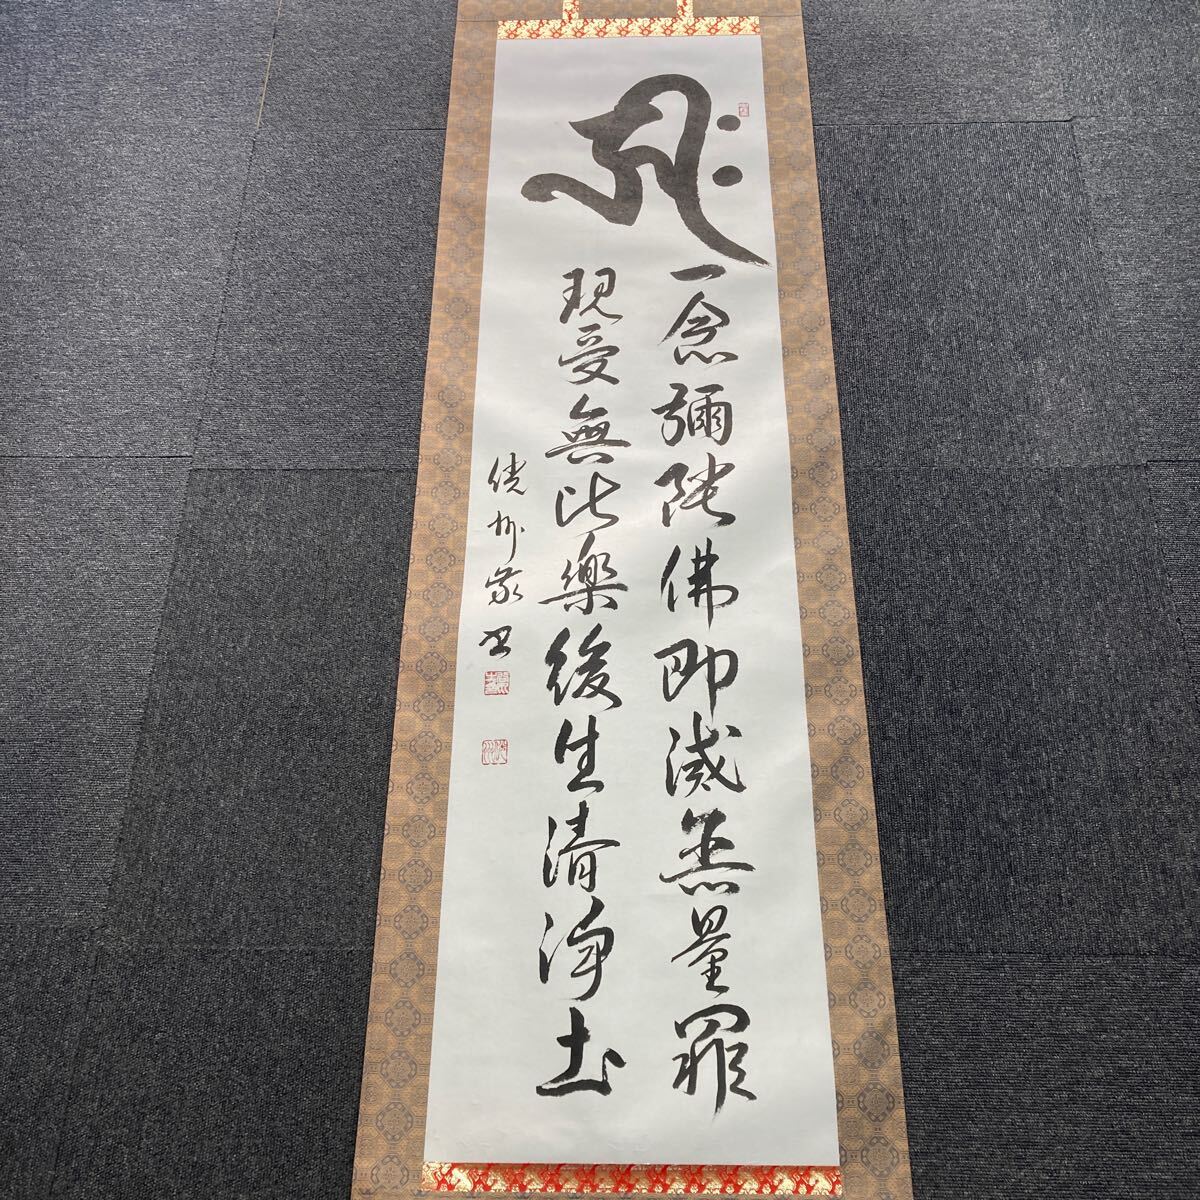 𑖮𑖿𑖨𑖱𑖾
一念彌陀佛即滅無量罪
現受無比樂後生清淨土